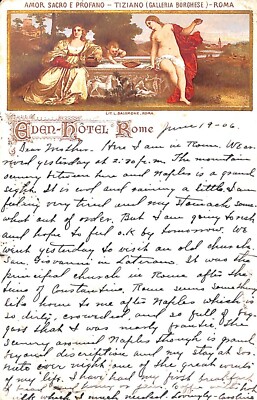 AMOR SACRO E PROFANO – TIZIANO (GALLERIA BORGHESE) – ROMA
LIT. L. SALOMONE, ROMA.
EDEN-HÔTEL, ROME June 19-06.
Dear Mother. Here I am in Rome. We ar-
rived yesterday at 2:30 P.m. The mountain
scenery between here and Naples is a grand
sight. It is cool and raining a little. I am
feeling very tired and my stomach some
what out of order. But I am going to rest
and hope to feel o.k by tomorrow. We
went yesterday to visit an old church
San. Giovanni in Laterano. It was the
principal church in Rome after the
time of Constantine. Rome seems something
like home to me after Naples which is
so dirty, crowded, and so full of beg-
gars that I was nearly frantic. The
scenery around Naples though is grand
beyond discription and my stay at Sor-
rento over night one of the great events
of my life. I have had my first
which I much needed. Lovingly-